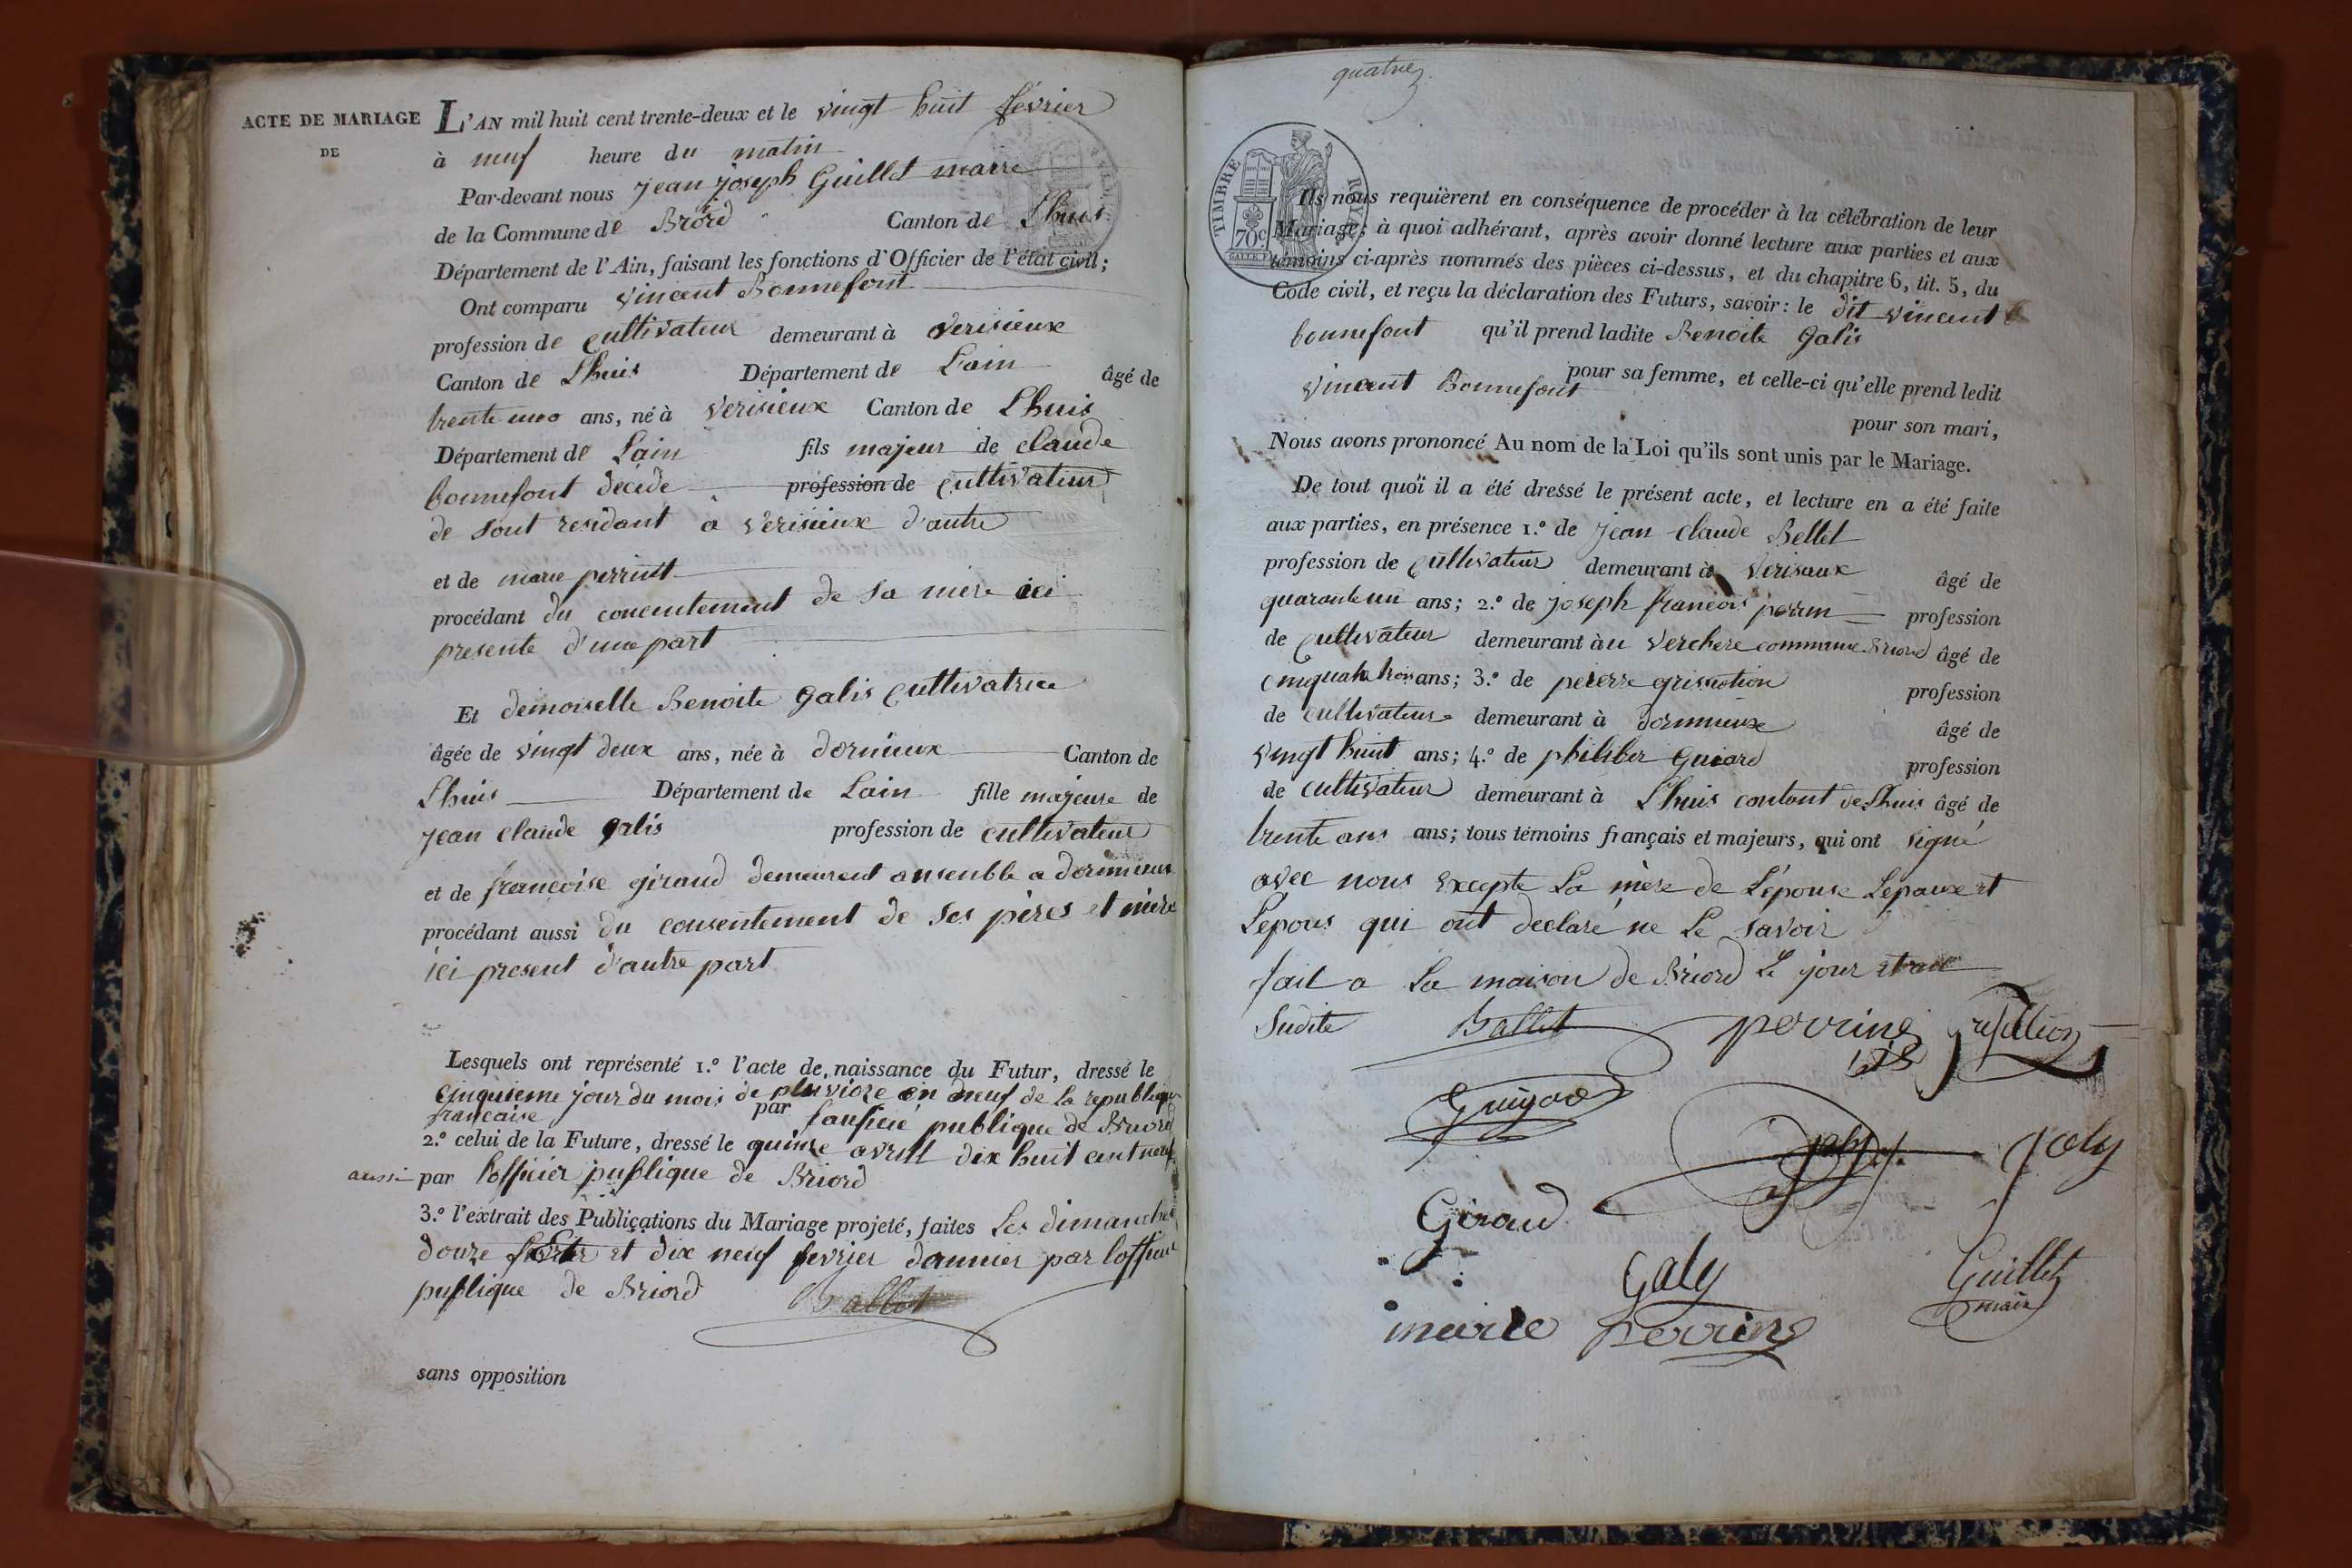 ACTE DE MARIAGE
DE
L'AN mil huit cent trente-deux et le vingt huit février
à neuf heure du matin
Par-devant nous jean joseph Guillet maire
de la Commune de Briord Canton de Lhuis
Département de l'Ain, faisant les fonctions d'Officier de l'état civil;
Ont comparu vincent Bonnefont
profession de cultivateur demeurant à verisieux
Canton de Lhuis Département de Lain âgé de
trente uno ans, né à verisieux Canton de Lhuis
Département de Lain fils majeur de claude
bonnefont décédé profession de cultivateur
de sont residant a verisieux d'autre
et de marie perrint
procédant du concentement de sa mere ici
presente d'une part
Et demoiselle Benoite galis cultivatrice
âgée de vingt deux ans, née à dornieux Canton de
Lhuis Département de Lain fille majeure de
jean claude galis profession de cultivateur
et de francoise giraud demeurent ansenble a dornieux
procédant aussi du consentement de ses pères et mère
ici present d'autre part
Lesquels ont représenté 1.º l'acte de naissance du Futur, dressé le
cinquieme jour du mois de pluvioze en neuf de la republique
francaise par publique de Briord
2.º celui de la Future, dressé le quinze avril dix huit cent neuf
aussi par lofficier publique de Briord
3.º l'extrait des Publications du Mariage projeté, faites les dimanches
douze et dix neuf fevrier dannier par lofficier
publique de Briord Ballet
sans opposition
quatre
TIMBRE ROYAL
70c
Ils nous requièrent en conséquence de procéder à la célébration de leur
Mariage; à quoi adhérant, après avoir donné lecture aux parties et aux
témoins ci-après nommés des pièces ci-dessus, et du chapitre 6, tit. 5, du
Code civil, et reçu la déclaration des Futurs, savoir: le dit vincent
bonnefont qu'il prend ladite Benoite galis
pour sa femme, et celle-ci qu'elle prend ledit
vincent Bonnefont
pour son mari,
Nous avons prononcé Au nom de la Loi qu'ils sont unis par le Mariage.
De tout quoi il a été dressé le présent acte, et lecture en a été faite
aux parties, en présence 1.º de jean claude Bellet
profession de cultivateur demeurant à verisieux âgé de
quarante un ans; 2.º de joseph francois perrin profession
de cultivateur demeurant àu verchere commune Briord âgé de
cinquante trois ans; 3.º de peierre grisnotion profession
de cultivateur demeurant à dornieux âgé de
vingt huint ans; 4.º de philiber guiard profession
de cultivateur demeurant à Lhuis contont de Lhuis âgé de
trente ans ans; tous témoins français et majeurs, qui ont signé
avec nous excepte La mère de L'épouse Lepouxe et
Lepous qui ont declaré ne le savoir
fait a La maison de Briord Le jour et an
sudite Ballet perrine
Guigard
galy
Giraud
Galy
Guillet
maire
marie perrine